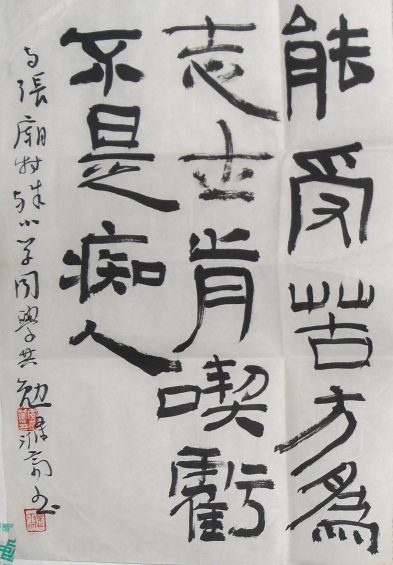 能受苦方為
志士肯喫虧
不是痴人
与張廟村小学同學共勉